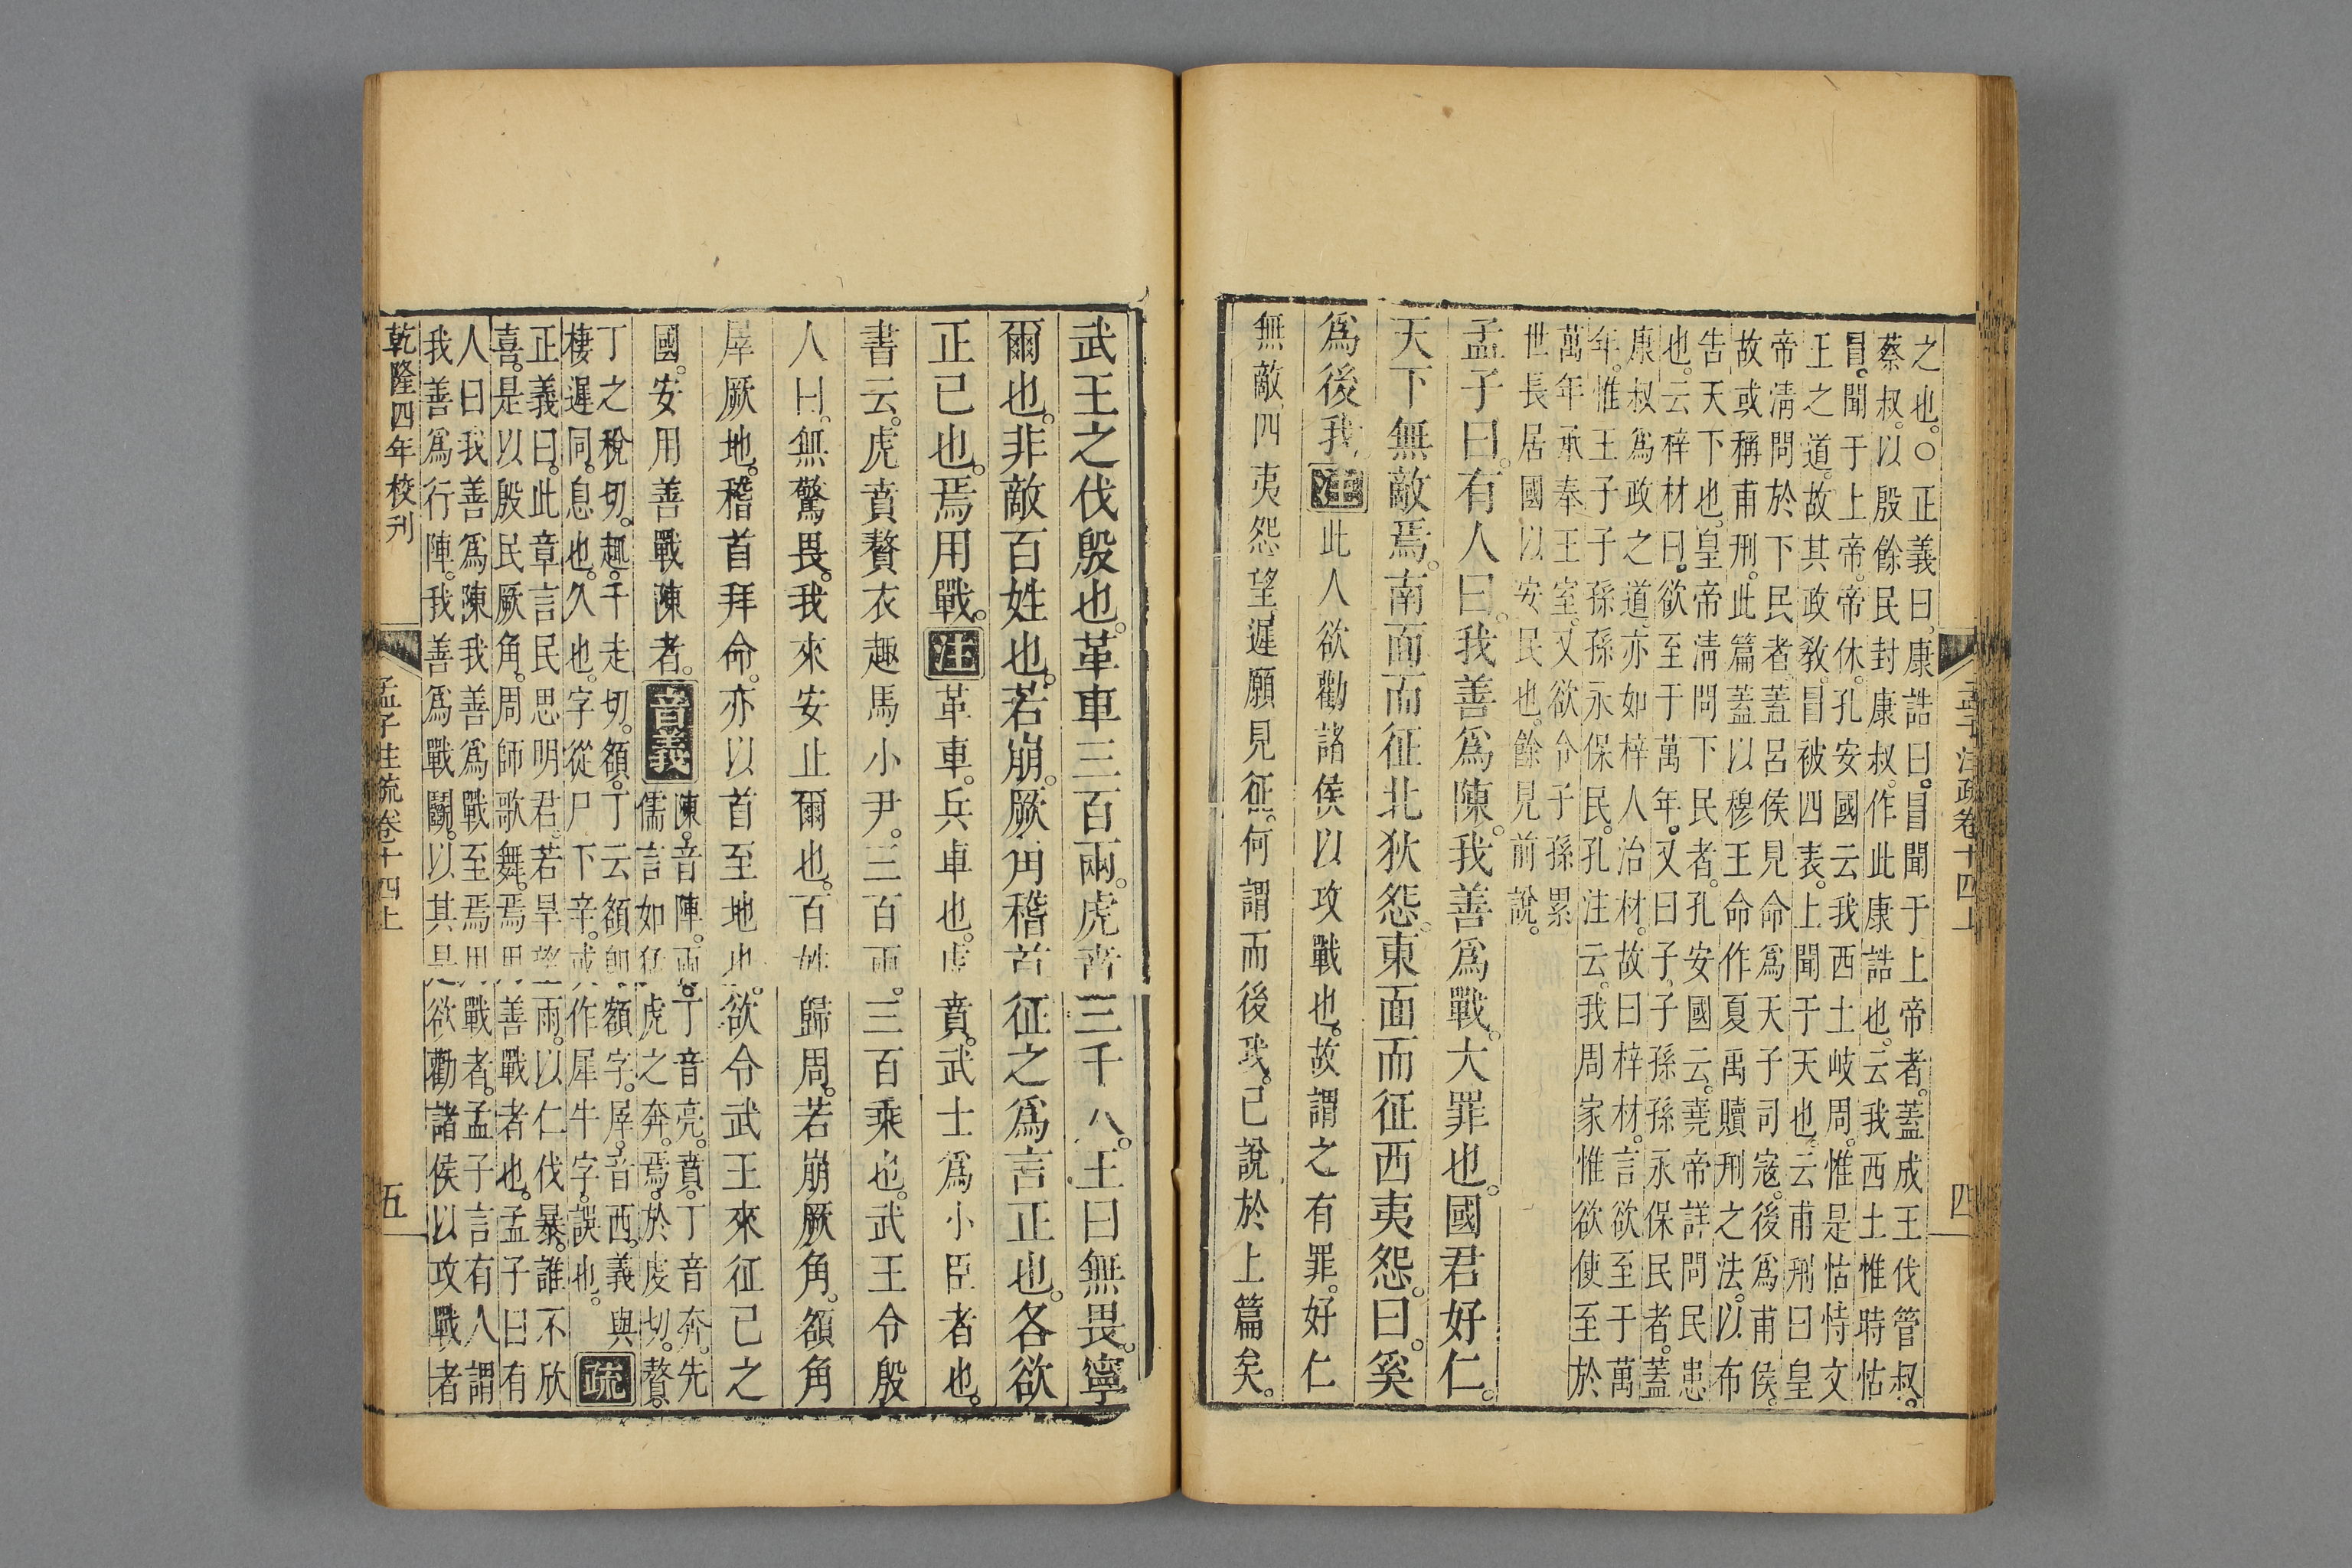 之也。○正義曰。康誥曰。冒聞于上帝者。蓋成王伐管叔。
蔡叔。以殷餘民封康叔。作此康誥也。云我西土惟時怙
冒。聞于上帝。帝休。孔安國云我西土岐周。惟是怙恃文
王之道。故其政教。冒被四表。上聞于天也。云甫刑曰皇
帝清問於下民者。蓋呂侯見命爲天子司寇。後爲甫侯。
故或稱甫刑。此篇蓋以穆王命作夏禹贖刑之法。以布
告天下也。皇帝清問下民者。孔安國云。堯帝詳問民患
也。云梓材曰。欲至于萬年。又曰子子孫孫永保民者。蓋
康叔爲政之道。亦如梓人治材。故曰梓材。言欲至于萬
年。惟王子子孫孫永保民。孔注云。我周家惟欲使至於
萬年承奉王室。又欲令子孫累
世長居國以安民也。餘見前說。
孟子曰。有人曰。我善爲陳。我善爲戰。大罪也。國君好仁。
天下無敵焉。南面而征北狄怨。東面而征西夷怨。曰。奚
爲後我注此人欲勸諸侯以攻戰也。故謂之有罪。好仁
無敵。四夷怨望遲願見征。何謂而後我。已說於上篇矣。
孟子注疏卷十四上
四
武王之伐殷也。革車三百兩。虎賁三千人。王曰無畏。寧
爾也。非敵百姓也。若崩。厥角稽首征之爲言正也。各欲
正已也。焉用戰。注革車。兵車也。虎賁。武士爲小臣者也。
書云。虎賁贅衣趣馬小尹。三百兩。三百乘也。武王令殷
人曰。無驚畏。我來安止爾也。百姓歸周。若崩厥角。額角
犀厥地。稽首拜命。亦以首至地也。欲令武王來征已之
國。安用善戰陳者。音義陳。音陣。兩。丁音亮。賁。丁音奔。先
儒言如猛虎之奔。焉。於虔切。贅。
丁之稅切。趣。千走切。額。丁云額卽額字。犀。音西。義與
棲遲同。息也。久也。字從尸下辛。或作犀牛字。誤也。疏
正義曰。此章言民思明君。若旱望雨。以仁伐暴。誰不欣
喜。是以殷民厥角。周師歌舞。焉用善戰者也。孟子曰有
人曰我善爲陳我善爲戰至焉用戰者。孟子言有人謂
我善爲行陣。我善爲戰鬭。以其是欲勸諸侯以攻戰者
乾隆四年校刊
孟子注疏卷十四上
五